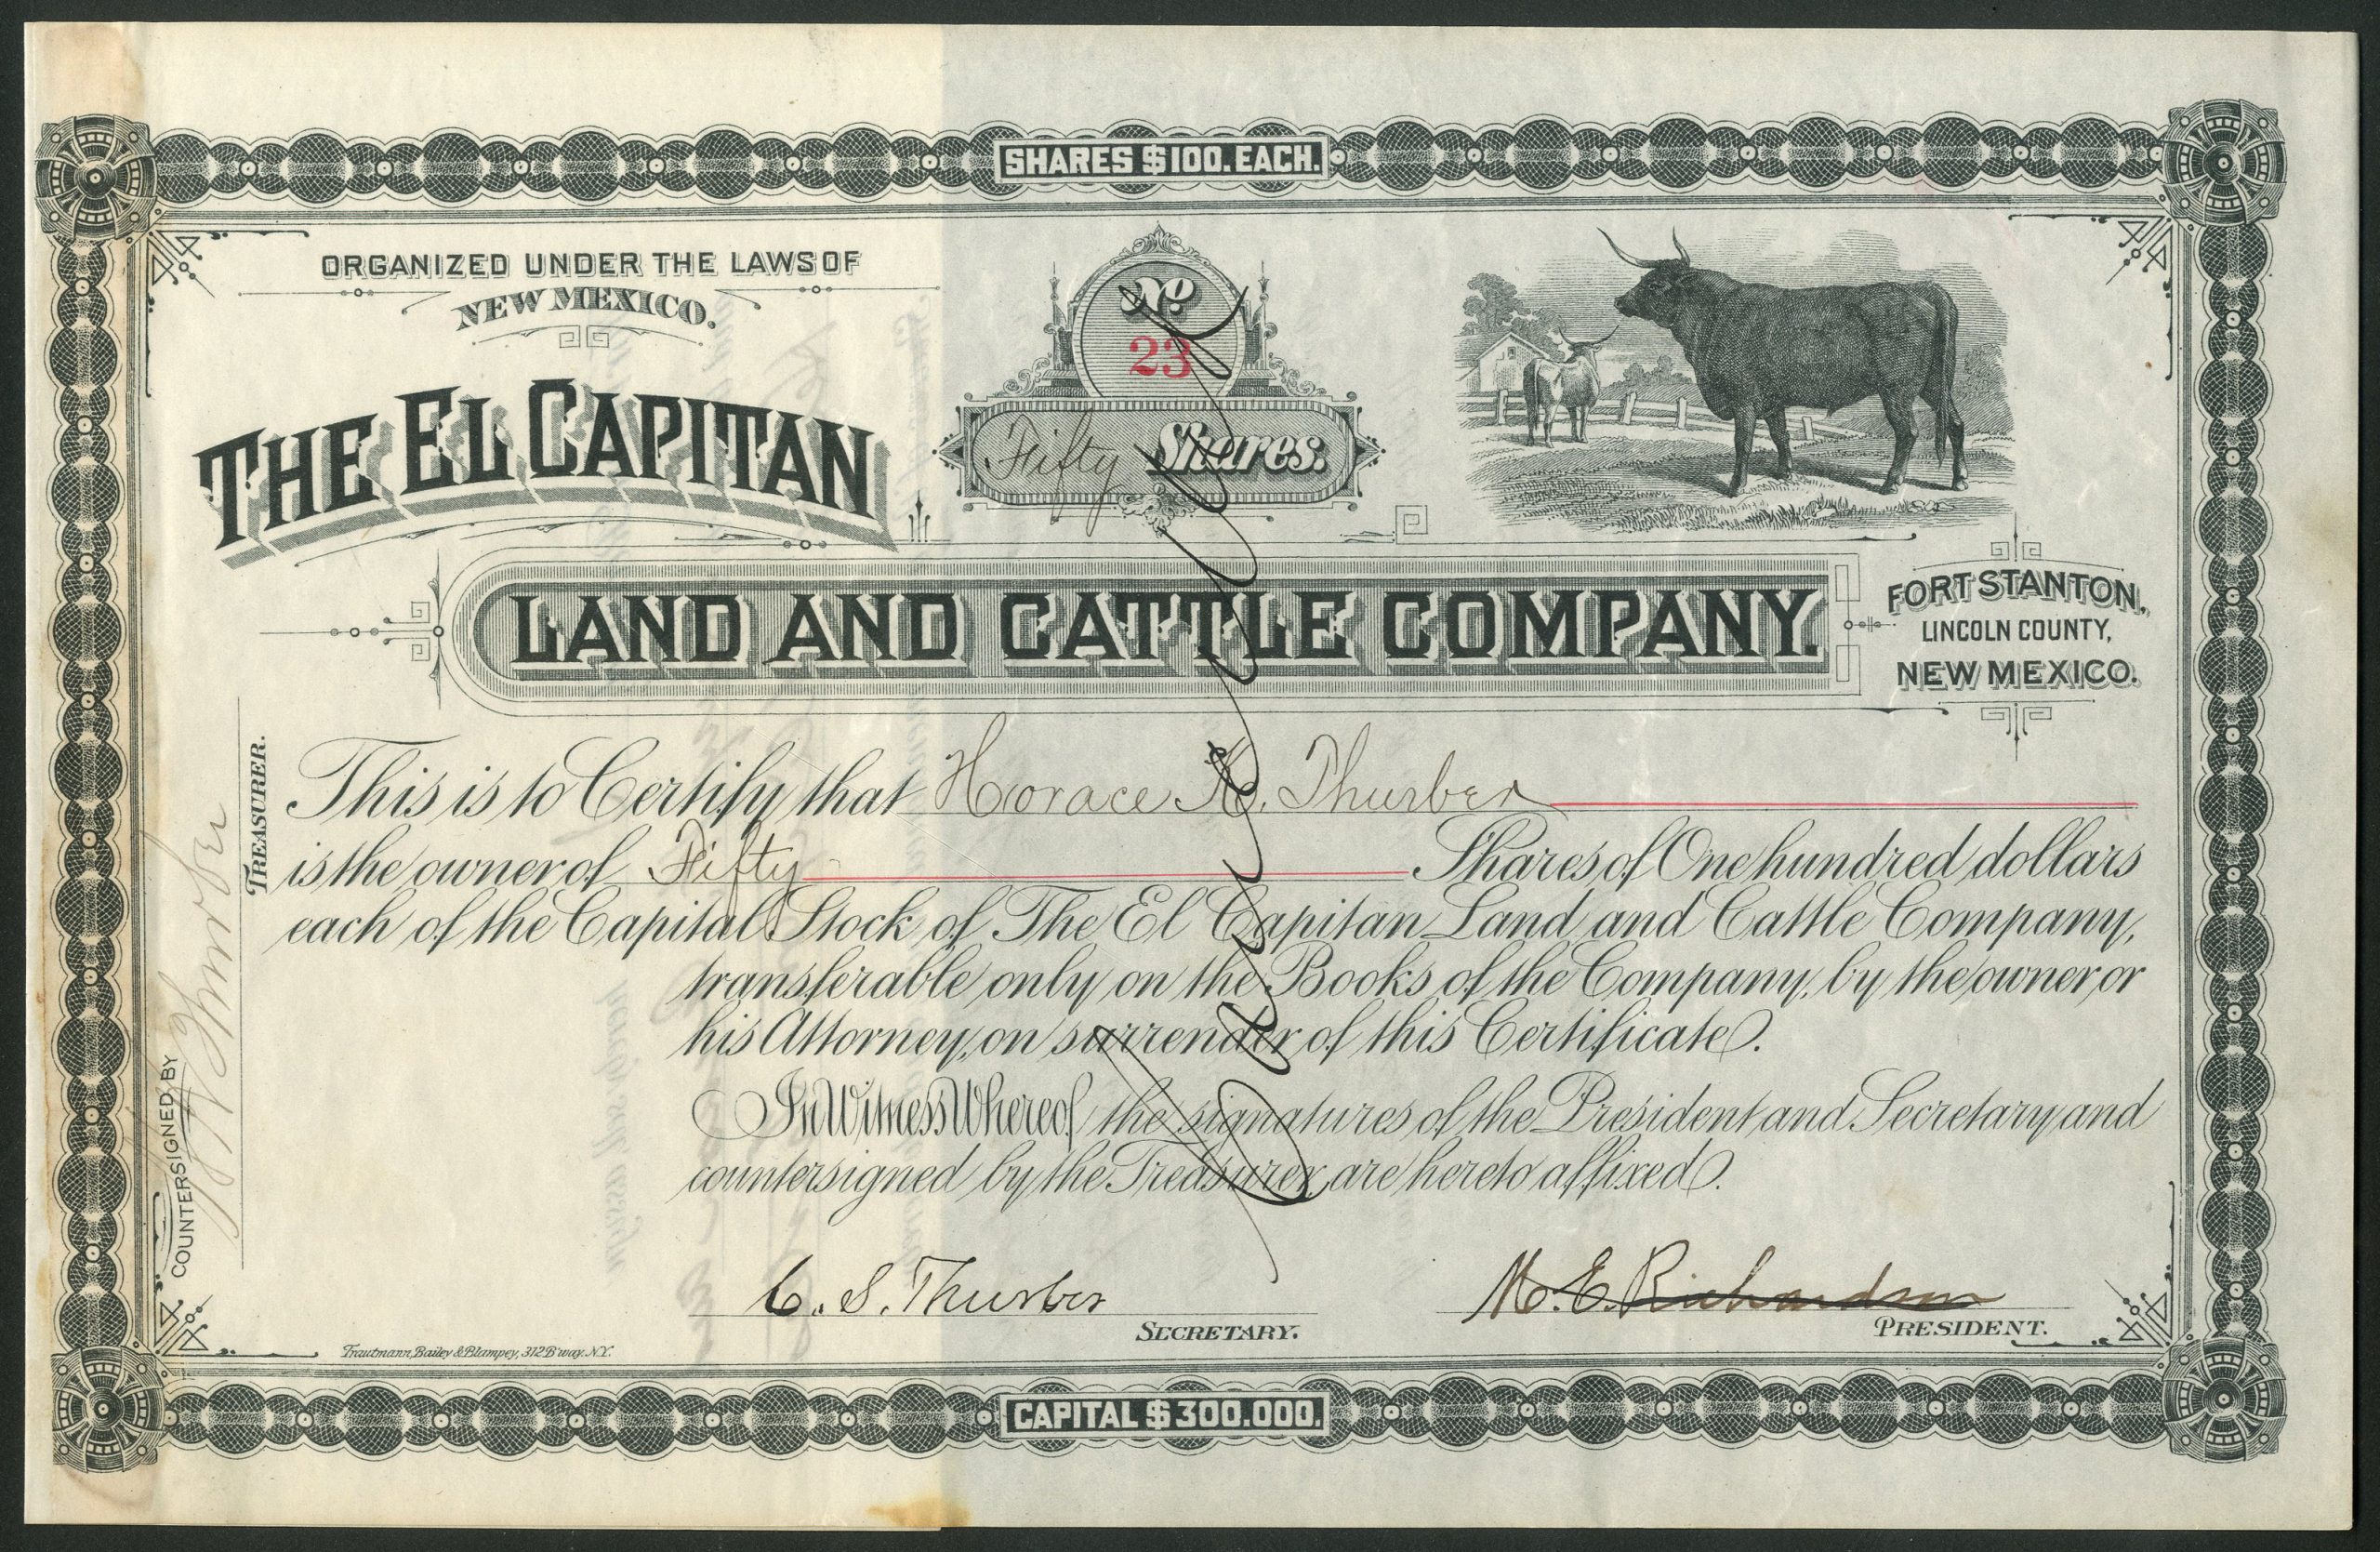 SHARES $100. EACH.
ORGANIZED UNDER THE LAWS OF
NEW MEXICO.
No
23
Fifty Shares.
THE EL CAPITAN
LAND AND CATTLE COMPANY.
FORT STANTON,
LINCOLN COUNTY,
NEW MEXICO.
This is to Certify that Horace K. Thurber
is the owner of Fifty Shares of One hundred dollars
each of the Capital Stock of The El Capitan Land and Cattle Company,
transferable only on the Books of the Company, by the owner or
his Attorney, on surrender of this Certificate.
In Witness Whereof the signatures of the President and Secretary and
countersigned by the Treasurer are hereto affixed.
Cancelled
COUNTERSIGNED BY
Thurber
TREASURER.
C. S. Thurber
SECRETARY.
M. E. Richardson
PRESIDENT.
Trautmann, Bailey & Blampey, 312 B'way. N.Y.
CAPITAL $300.000.